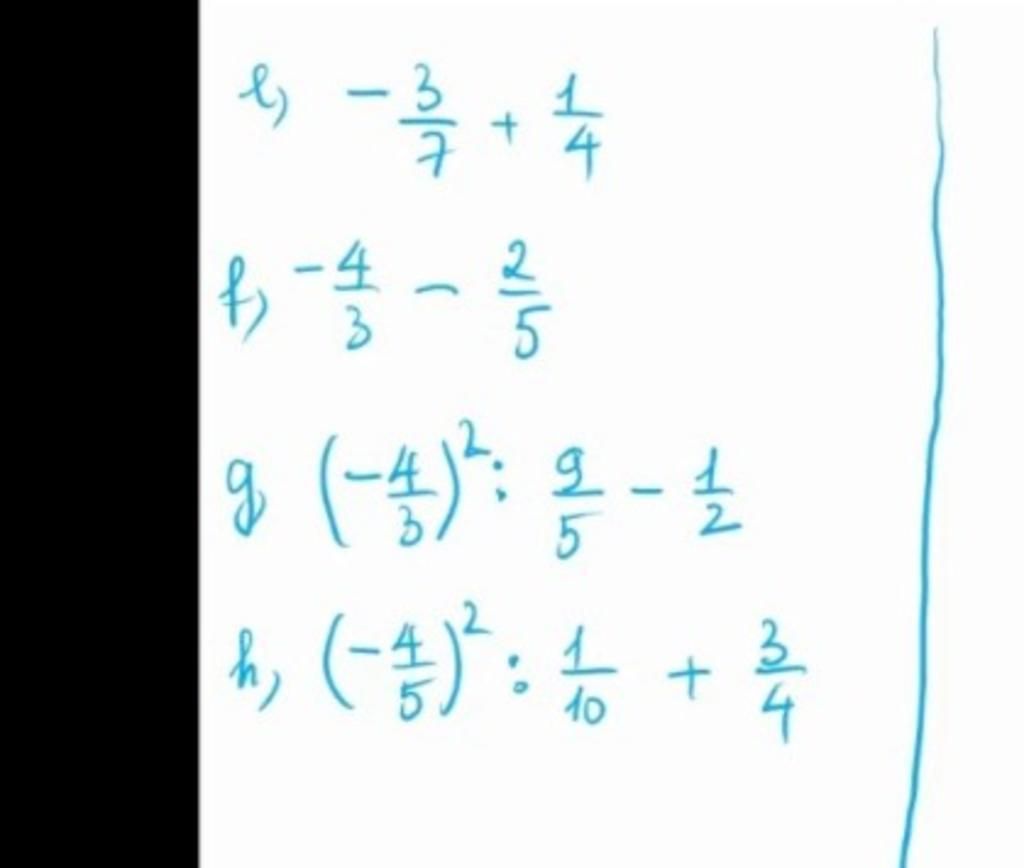 e, - 3/7 + 1/4
f, -4/3 - 2/5
g, (-4/3)² : 9/5 - 1/2
h, (-4/5)² : 1/10 + 3/4